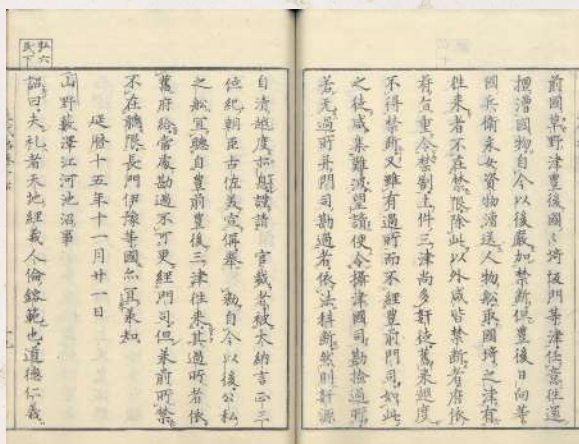 前國草野津豊後國々埼坂門等津任意往還
擅漕國物自今以後嚴加禁断但豊後日向等
國兵衛采女資物漕送人物舩取國埼之津有
徃来者不在禁限除此以外咸皆禁断者府依
符旨重令禁制上件三津尚多奸徒舊来越度
不得禁断又雖有過所而不經豊前門司如此
之徒咸集難波望請便令攝津國司勘檢過所
若无過所并門司勘過者依法科断然則奸源
自清越度亦息謹請官裁者被大納言正三
位紀朝臣古佐美宣偁奉勅自今以後公私
之舩宜聽自豊前豊後三津徃来其過所者依
舊府給當處勘過不可更經門司但承前所禁
不在聽限長門伊豫等國亦宜承知
延暦十五年十一月廿一日
山野藪澤江河池沼事
詔曰夫礼者天地經義人倫鎔範也道德仁義
弘六
民下